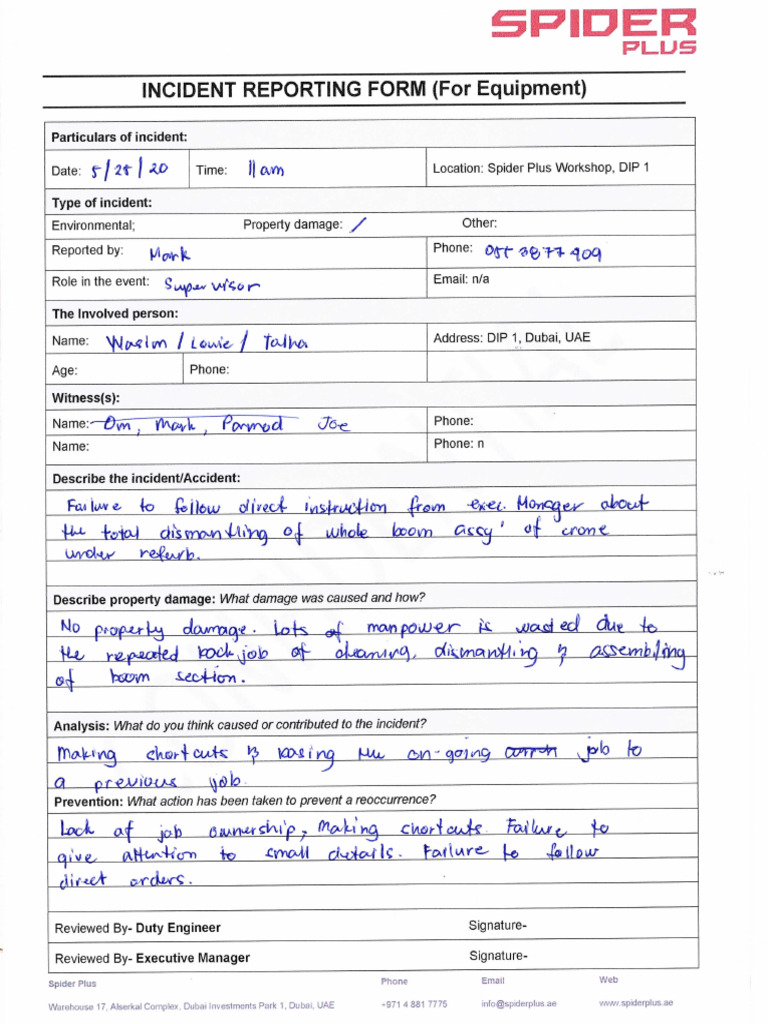 SPIDER
PLUS
INCIDENT REPORTING FORM (For Equipment)
Particulars of incident:
Date: 5/25/20 Time: 11am Location: Spider Plus Workshop, DIP 1
Type of incident:
Environmental; Property damage: / Other:
Reported by: Mark Phone: 055 3877 909
Role in the event: Supervisor Email: n/a
The Involved person:
Name: Wasim / Louie / Talha Address: DIP 1, Dubai, UAE
Age: Phone:
Witness(s):
Name: Om, Mark, Parmod Joe Phone:
Name: Phone: n
Describe the incident/Accident:
Failure to follow direct instruction from exec. Manager about
the total dismantling of whole boom assy' of crane
under refurb.
Describe property damage: What damage was caused and how?
No property damage. Lots of manpower is wasted due to
the repeated back job of cleaning, dismantling & assembling
of boom section.
Analysis: What do you think caused or contributed to the incident?
Making shortcuts & basing the on-going job to
a previous job.
Prevention: What action has been taken to prevent a reoccurrence?
Lack of job ownership, Making shortcuts. Failure to
give attention to small details. Failure to follow
direct orders.
Reviewed By- Duty Engineer Signature-
Reviewed By- Executive Manager Signature-
Spider Plus Phone Email Web
Warehouse 17, Alserkal Complex, Dubai Investments Park 1, Dubai, UAE +971 4 881 7775 info@spiderplus.ae www.spiderplus.ae